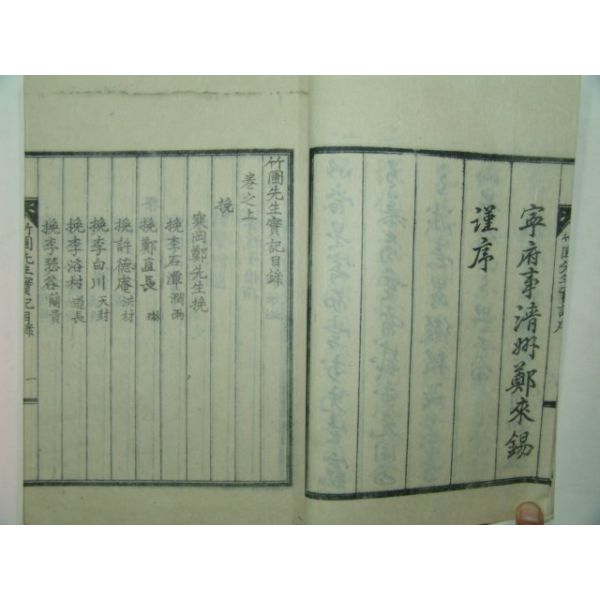 寧府事淸州鄭來錫
謹序
竹圃先生實記目錄
卷之上
挽
寒岡鄭先生挽
挽李石潭 潤雨
挽鄭直長
挽許德庵 洪材
挽李白川 天封
挽李溶村 道長
挽李碧谷 蘭貴
竹圃先生實記目錄 一